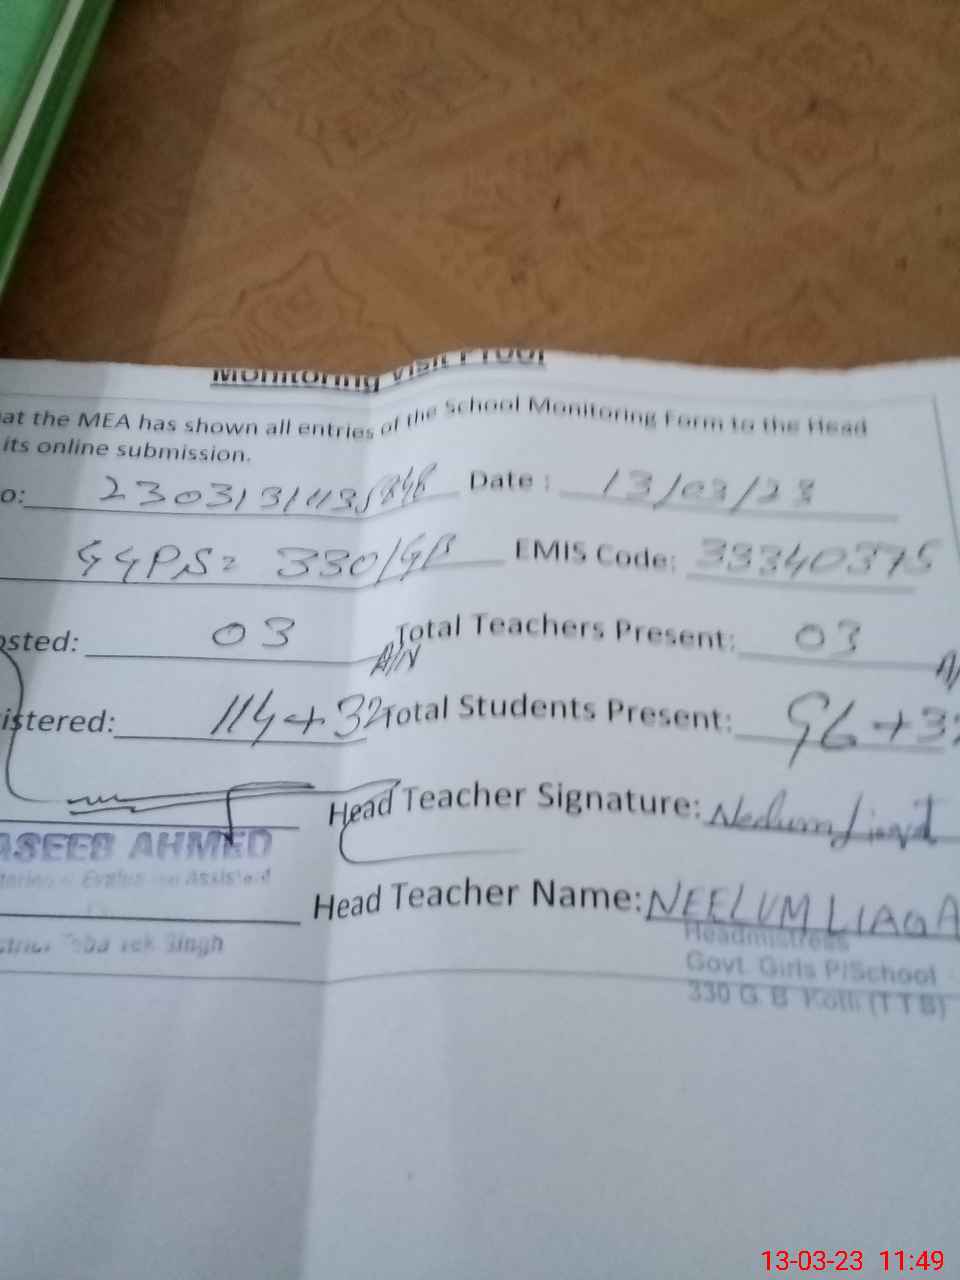 Monitoring Visit Proof
at the MEA has shown all entries of the School Monitoring Form to the Head
its online submission.
o: Date : 13/03/23
GGPS= 330/GB EMIS Code: 33340375
osted: 03 Total Teachers Present: 03
A/N
istered: 114+32 Total Students Present: 96+32
Head Teacher Signature: Neelum Liaqat
ASEEB AHMED
Head Teacher Name: NEELUM LIAQA
Toba Tek Singh
Headmistress
Govt. Girls P/School
330 G.B (T T S)
13-03-23 11:49